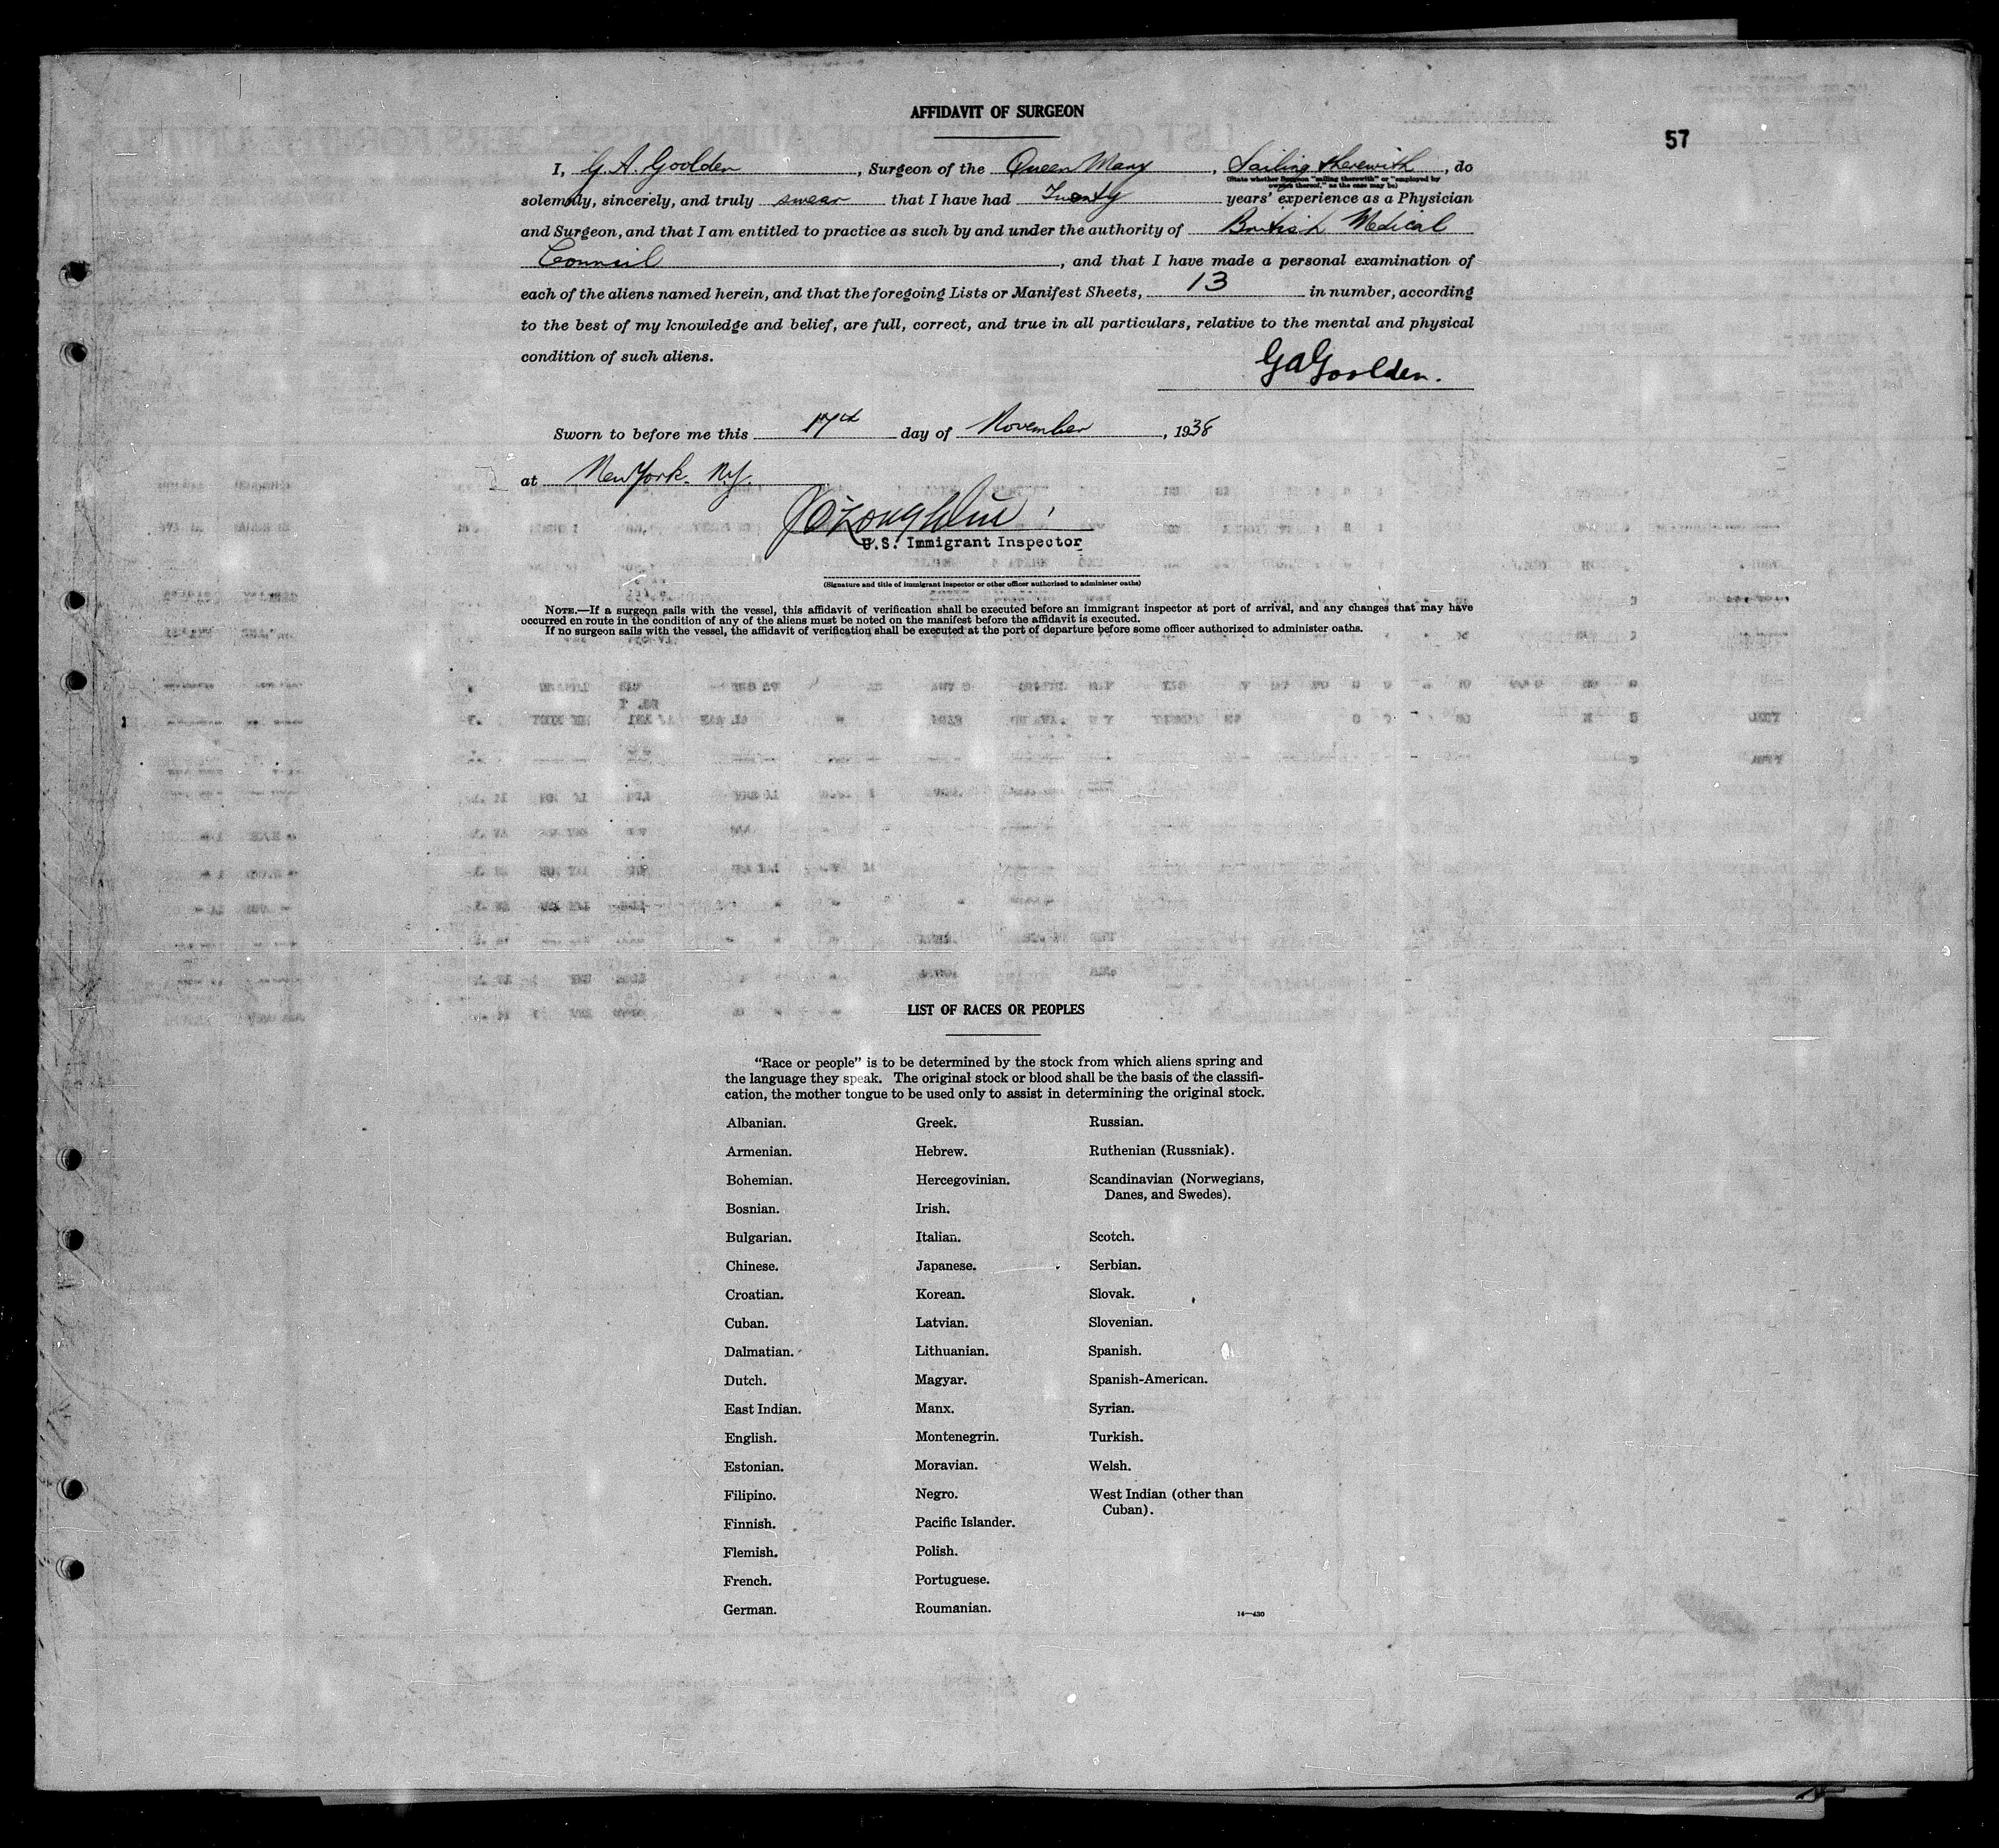 AFFIDAVIT OF SURGEON
57
I, G. A. Goolden, Surgeon of the Queen Mary, Sailing therewith, do
(State whether Surgeon "sailing therewith" or "employed by
owners thereof," as the case may be)
solemnly, sincerely, and truly swear that I have had Twenty years' experience as a Physician
and Surgeon, and that I am entitled to practice as such by and under the authority of British Medical
Council, and that I have made a personal examination of
each of the aliens named herein, and that the foregoing Lists or Manifest Sheets, 13 in number, according
to the best of my knowledge and belief, are full, correct, and true in all particulars, relative to the mental and physical
condition of such aliens.
G A Goolden.
Sworn to before me this 17th day of November, 1938
at New York. N.Y.
U.S. Immigrant Inspector
(Signature and title of immigrant inspector or other officer authorized to administer oaths)
NOTE.—If a surgeon sails with the vessel, this affidavit of verification shall be executed before an immigrant inspector at port of arrival, and any changes that may have
occurred en route in the condition of any of the aliens must be noted on the manifest before the affidavit is executed.
If no surgeon sails with the vessel, the affidavit of verification shall be executed at the port of departure before some officer authorized to administer oaths.
LIST OF RACES OR PEOPLES
"Race or people" is to be determined by the stock from which aliens spring and
the language they speak. The original stock or blood shall be the basis of the classifi-
cation, the mother tongue to be used only to assist in determining the original stock.
Albanian.
Armenian.
Bohemian.
Bosnian.
Bulgarian.
Chinese.
Croatian.
Cuban.
Dalmatian.
Dutch.
East Indian.
English.
Estonian.
Filipino.
Finnish.
Flemish.
French.
German.
Greek.
Hebrew.
Hercegovinian.
Irish.
Italian.
Japanese.
Korean.
Latvian.
Lithuanian.
Magyar.
Manx.
Montenegrin.
Moravian.
Negro.
Pacific Islander.
Polish.
Portuguese.
Roumanian.
Russian.
Ruthenian (Russniak).
Scandinavian (Norwegians,
Danes, and Swedes).
Scotch.
Serbian.
Slovak.
Slovenian.
Spanish.
Spanish-American.
Syrian.
Turkish.
Welsh.
West Indian (other than
Cuban).
14—430